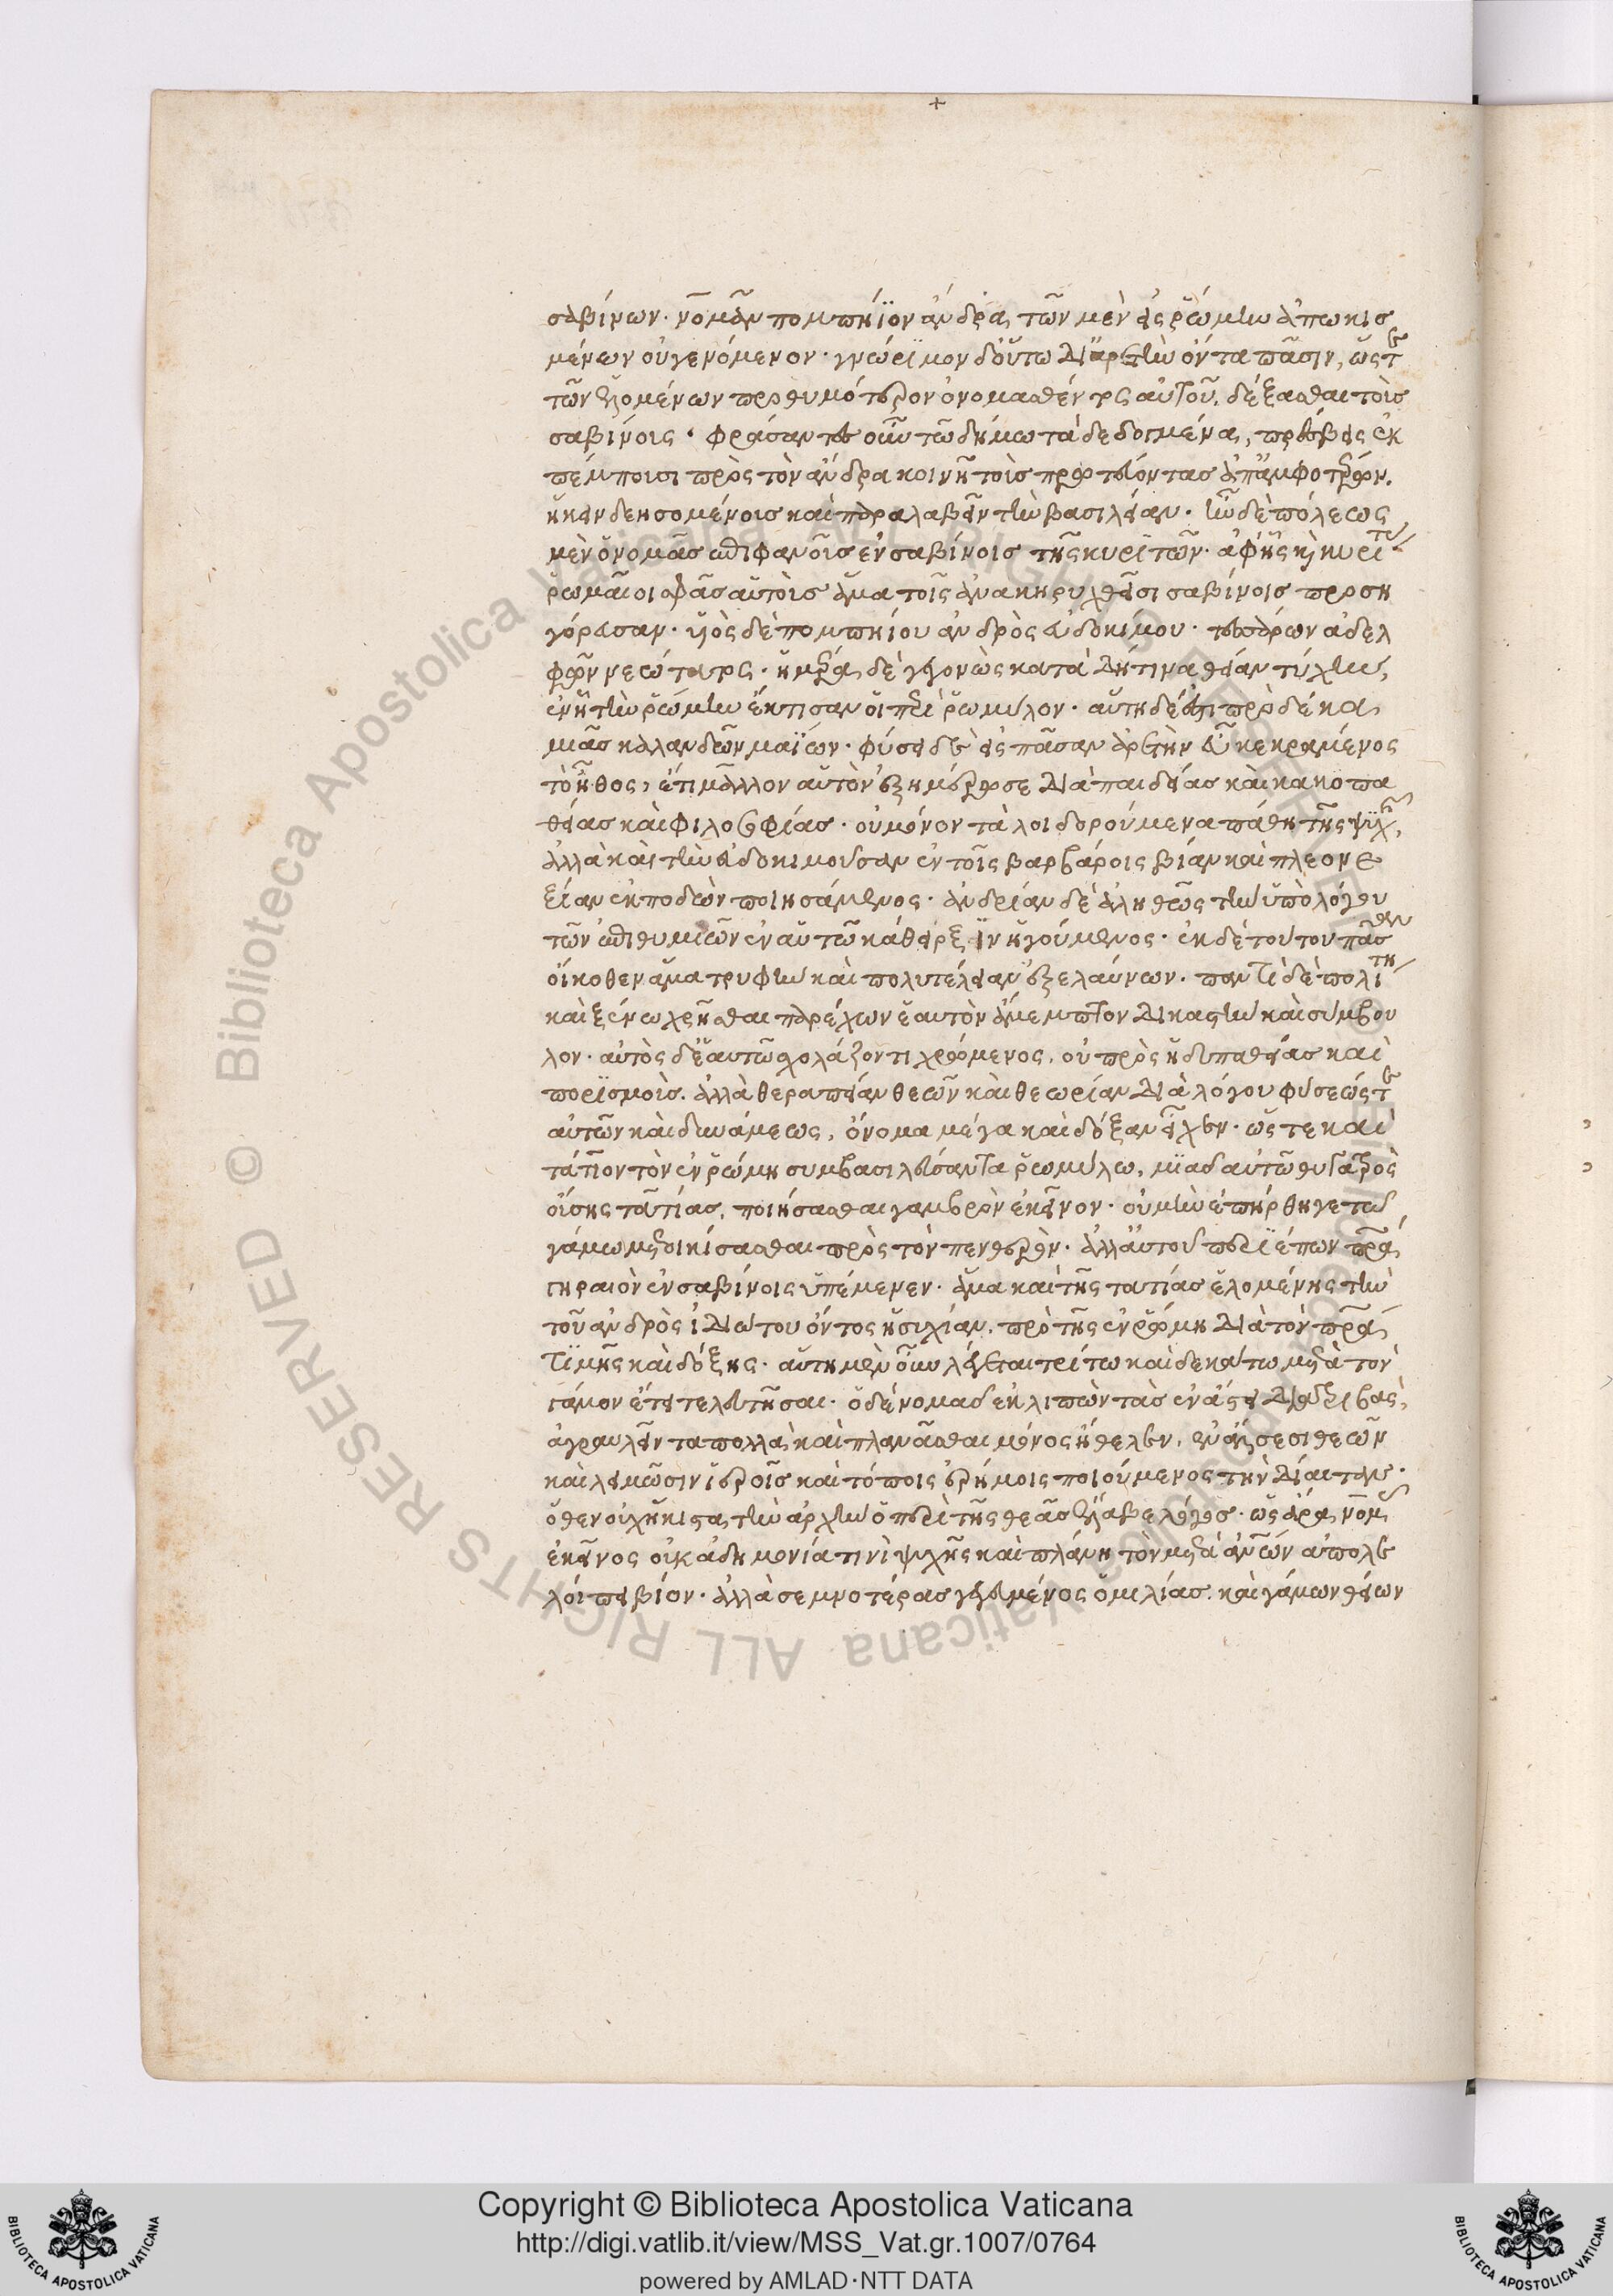 σαβίνων· νομᾶν πομπηίον ἄνδρα, τῶν μὲν εἰς ῥώμην ἀπωκισ
μένων οὐ γενόμενον· γνώριμον δ' οὕτω δι' ἀρετὴν ὄντα πᾶσιν, ὥστε
τῶν ἑλομένων προθυμότερον ὀνομασθέντος αὐτοῦ, δέξασθαι τοὺς
σαβίνοις· φράσαντες οὖν τῶ δήμω τὰ δεδογμένα, πρέσβεις ἐκ
πέμπουσι πρὸς τὸν ἄνδρα κοινῆ τοὺς πρωτεύοντας ἀπ' ἀμφοτέρων.
ἥκειν δεησομένοις καὶ παραλαβεῖν τὴν βασιλείαν. ἦν δὲ πόλεως
μὲν ὁ νομᾶς ἐπιφανοῦς ἐν σαβίνοις τῆς κυριτῶν· ἀφ' ἧς κὴ κυρίτας
ῥωμαῖοι σφᾶς αὐτοὺς ἅμα τοῖς ἀνακηρυχθεῖσι σαβίνοις προση
γόρευσαν· υἱὸς δὲ πομπηίου ἀνδρὸς εὐδοκίμου· τεσσάρων ἀδελ
φῶν νεώτατος· ἡμέρα δὲ γεγονὼς κατὰ δή τινα θείαν τύχην,
ἐν ἧ τὴν ῥώμην ἔκτισαν οἱ περὶ ῥωμύλον· αὕτη δέ ἐστι πρὸ δέκα
μιᾶς καλανδῶν μαΐων· φύσει δὲ εἰς πᾶσαν ἀρετὴν εὖ κεκραμένος
τὸ ἦθος, ἔτι μᾶλλον αὐτὸν ἐξημέρωσε διὰ παιδείας καὶ κακοπα
θείας καὶ φιλοσοφίας· οὐ μόνον τὰ λοιδορούμενα πάθη τῆς ψυχῆς,
ἀλλὰ καὶ τὴν εὐδοκιμοῦσαν ἐν τοῖς βαρβάροις βίαν καὶ πλεονε
ξίαν ἐκποδὼν ποιησάμενος· ἀνδρίαν δὲ ἀληθῶς τὴν ὑπὸ λόγου
τῶν ἐπιθυμιῶν ἐν αὑτῶ κάθειρξιν ἡγούμενος· ἐκ δὲ τούτου πᾶσαν
οἴκοθεν ἅμα τρυφὴν καὶ πολυτέλειαν ἐξελαύνων· παντὶ δὲ πολίτη
καὶ ξένω χρῆσθαι παρέχων ἑαυτὸν ἄμεμπτον δικαστὴν καὶ σύμβου
λον· αὐτὸς δ' ἑαυτῶ σχολάζοντι χρώμενος, οὐ πρὸς ἡδυπαθείας καὶ
πορισμοὺς. ἀλλὰ θεραπείαν θεῶν καὶ θεωρίαν διὰ λόγου φύσεώς τε
αὐτῶν καὶ δυνάμεως, ὄνομα μέγα καὶ δόξαν εἶχεν· ὥστε καὶ
τάτιον τὸν ἐν ῥώμη συμβασιλεύσαντα ῥωμύλω, μιᾶς αὐτῶ θυγατρὸς
οὔσης τατίας, ποιήσασθαι γαμβρὸν ἐκεῖνον· οὐ μὴν ἐπήρθη γε τῶ
γάμω μετοικίσασθαι πρὸς τὸν πενθερὸν· ἀλλ' αὐτοῦ περιέπων πατέρα
γηραιὸν ἐν σαβίνοις ὑπέμενεν· ἅμα καὶ τῆς τατίας ἑλομένης τὴν
τοῦ ἀνδρὸς ἰδιώτου ὄντος ἡσυχίαν, πρὸ τῆς ἐν ῥώμη διὰ τὸν πατέρα
τιμῆς καὶ δόξης· αὕτη μὲν οὖν λέγεται τρίτω καὶ δεκάτω μετὰ τὸν
γάμον ἔτει τελευτῆσαι· ὁ δὲ νομᾶς ἐκλιπὼν τὰς ἐν ἄστει διατριβὰς,
ἀγραυλεῖν τὰ πολλὰ καὶ πλανᾶσθαι μόνος ἤθελεν, ἐν ἄλσεσι θεῶν
καὶ λειμῶσιν ἱεροῖς καὶ τόποις ἐρήμοις ποιούμενος τὴν δίαιταν·
ὅθεν οὐχ ἥκιστα, τὴν ἀρχὴν ὁ περὶ τῆς θεᾶς ἔλαβε λόγος· ὡς ἄρα νομᾶς
ἐκεῖνος οὐκ ἀδημονία τινὶ ψυχῆς καὶ πλάνη τὸν μετὰ ἀνθρώπων ἀπολε
λοίπει βίον· ἀλλὰ σεμνοτέρας γεγευμένος ὁμιλίας, καὶ γάμων θείων